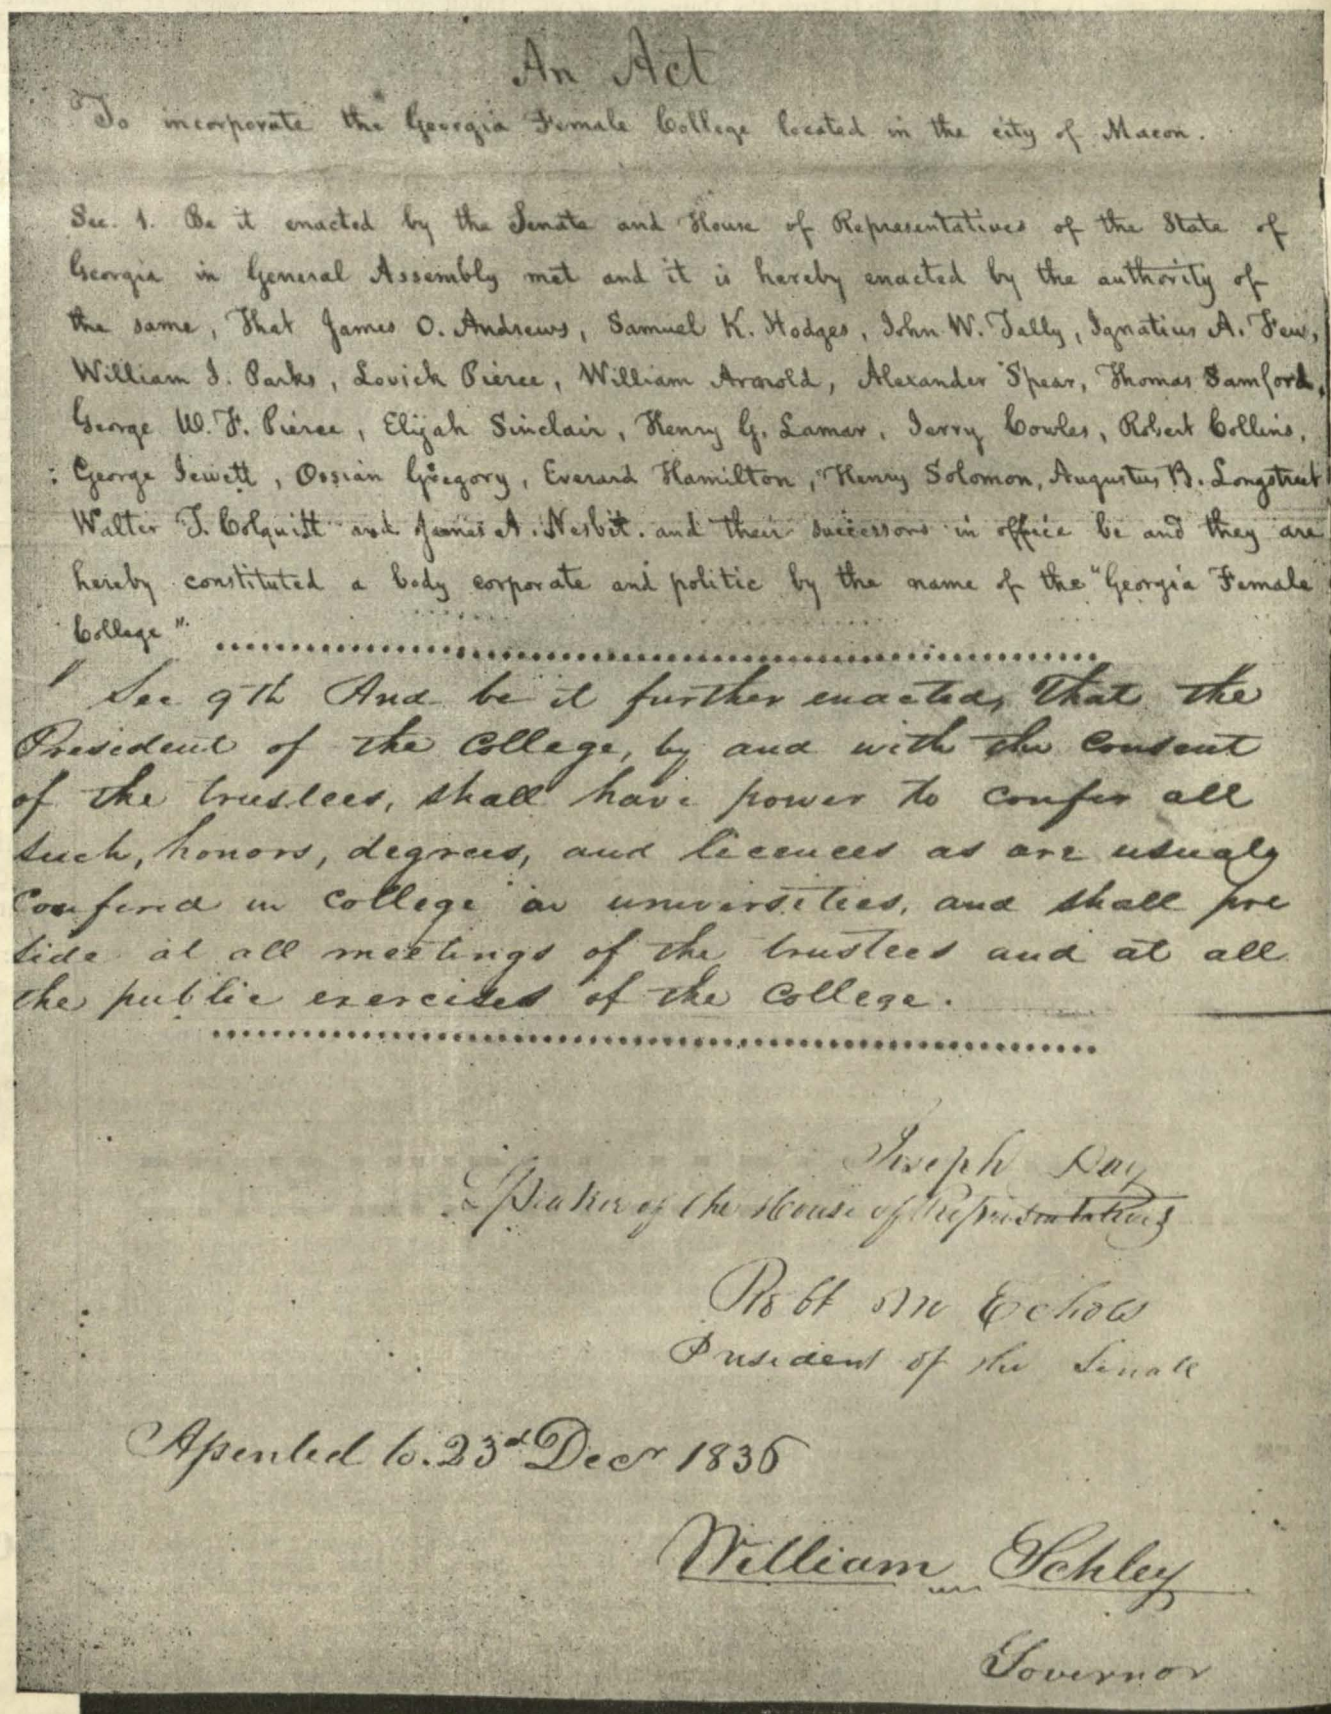 An Act
To incorporate the Georgia Female College located in the city of Macon.
Sec. 1. Be it enacted by the Senate and House of Representatives of the State of
Georgia in General Assembly met and it is hereby enacted by the authority of
the same, That James O. Andrews, Samuel K. Hodges, John W. Tally, Ignatius A. Few,
William J. Parks, Lovick Pierce, William Arnold, Alexander Spear, Thomas Samford,
George W. F. Pierce, Elijah Sinclair, Henry G. Lamar, Jerry Cowles, Robert Collins,
George Jewett, Ossian Gregory, Everard Hamilton, Henry Solomon, Augustus B. Longstreet
Walter T. Colquitt and James A. Nesbit. and their successors in office be and they are
hereby constituted a body corporate and politic by the name of the "Georgia Female
College"
" Sec 9th And be it further enacted, That the
President of the College, by and with the consent
of the trustees, shall have power to confer all
such, honors, degrees, and licences as are usualy
confered in college or universities, and shall pre
side at all meetings of the trustees and at all
the public exercises of the College.
Joseph Day
Speaker of the House of Representatives
Robt M Echols
President of the Senate
Asented to. 23d Decr 1836
William Schley
Governor